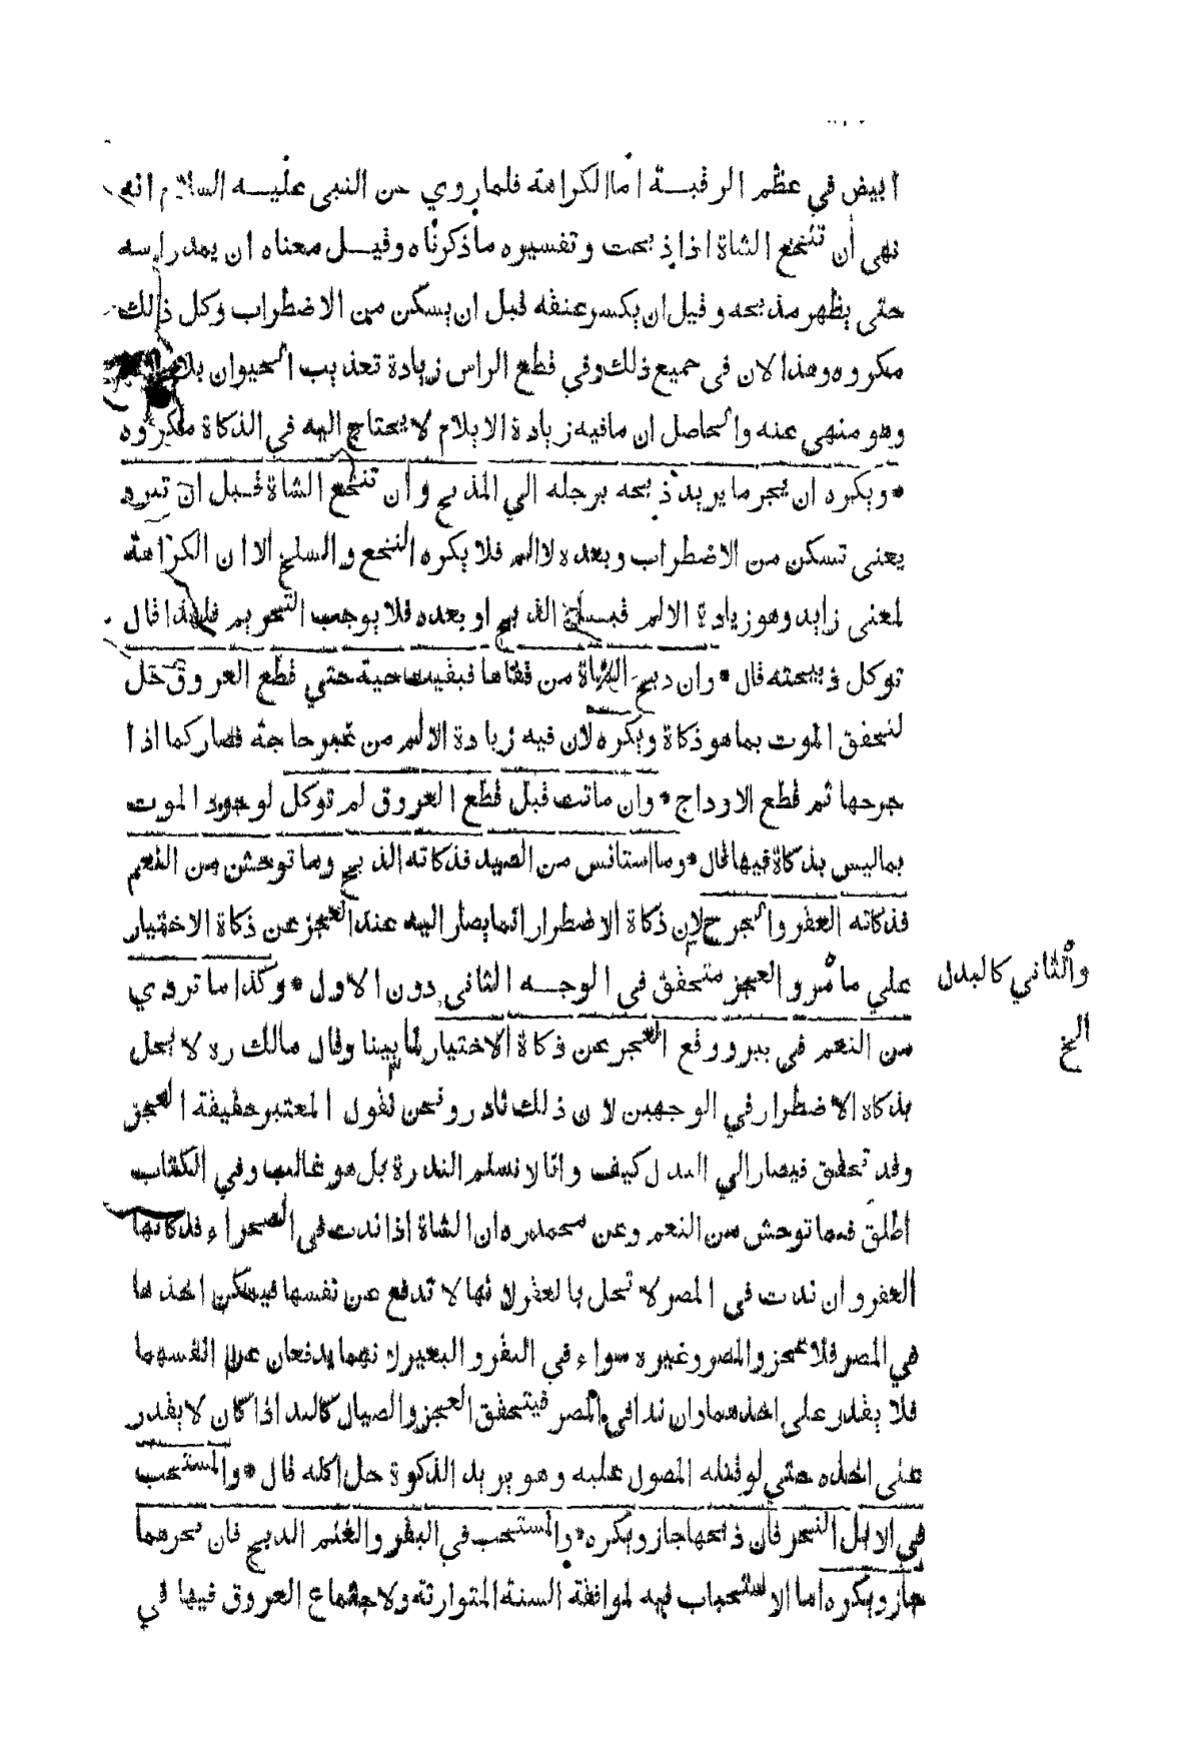 ابيض في عظم الرقبة اما الكراهة فلما روي عن النبي عليه السلام انه
نهى أن تنخع الشاة اذا ذبحت وتفسيره ما ذكرناه وقيل معناه ان يمد راسه
حتى يظهر مذبحه وقيل ان يكسر عنقه قبل ان يسكن من الاضطراب وكل ذلك
مكروه وهذا لان في جميع ذلك وفي قطع الراس زيادة تعذيب الحيوان بلا
وهو منهى عنه والحاصل ان ما فيه زيادة الايلام لا يحتاج اليه في الذكاة مكروه
* ويكره ان يجر ما يريد ذبحه برجله الي المذبح وان تنخع الشاة قبل ان تبرد
يعنى تسكن من الاضطراب وبعده لا الم فلا يكره النخع والسلخ الا ان الكراهة
لمعنى زايد وهو زيادة الالم قبل الذبح او بعده فلا يوجب التحريم فلهذا قال
توكل ذبيحته قال * وان ذبح الشاة من قفاها فبقيت حية حتي قطع العروق حل
لتحقق الموت بما هو ذكاة ويكره لان فيه زيادة الالم من غير حاجة فصار كما اذا
جرحها ثم قطع الاوداج * وان ماتت قبل قطع العروق لم توكل لوجود الموت
بما ليس بذكاة فيها قال * وما استانس من الصيد فذكاته الذبح وما توحش من النعم
فذكاته العقر والجرح لان ذكاة الاضطرار انما يصار اليه عند العجز عن ذكاة الاختيار
علي ما مر والعجز متحقق في الوجه الثاني دون الاول * وكذا ما تردي
والثاني كالبدل
الخ
من النعم في بير ووقع العجز عن ذكاة الاختيار لما بينا وقال مالك ره لا يحل
بذكاة الاضطرار في الوجهين لان ذلك نادر ونحن نقول المعتبر حقيقة العجز
وقد تحقق فيصار الي البدل كيف وانا لا نسلم الندرة بل هو غالب وفي الكتاب
اطلق فيما توحش من النعم وعن محمد ره ان الشاة اذا ندت في الصحراء فذكاتها
العقر وان ندت في المصر لا تحل بالعقر لانها لا تدفع عن نفسها فيمكن اخذها
في المصر فلا عجز والمصر وغيره سواء في البقر والبعير لانهما يدفعان عن انفسهما
فلا يقدر على اخذهما وان ندا في المصر فيتحقق العجز والصيال كالند اذا كان لا يقدر
على اخذه حتي لو قتله المصول عليه وهو يريد الذكوة حل اكله قال * والمستحب
في الابل النحر فان ذبحها جاز ويكره * والمستحب في البقر والغنم الذبح فان نحرهما
جاز ويكره اما الاستحباب فيه لموافقة السنة المتوارثة ولاجتماع العروق فيها في